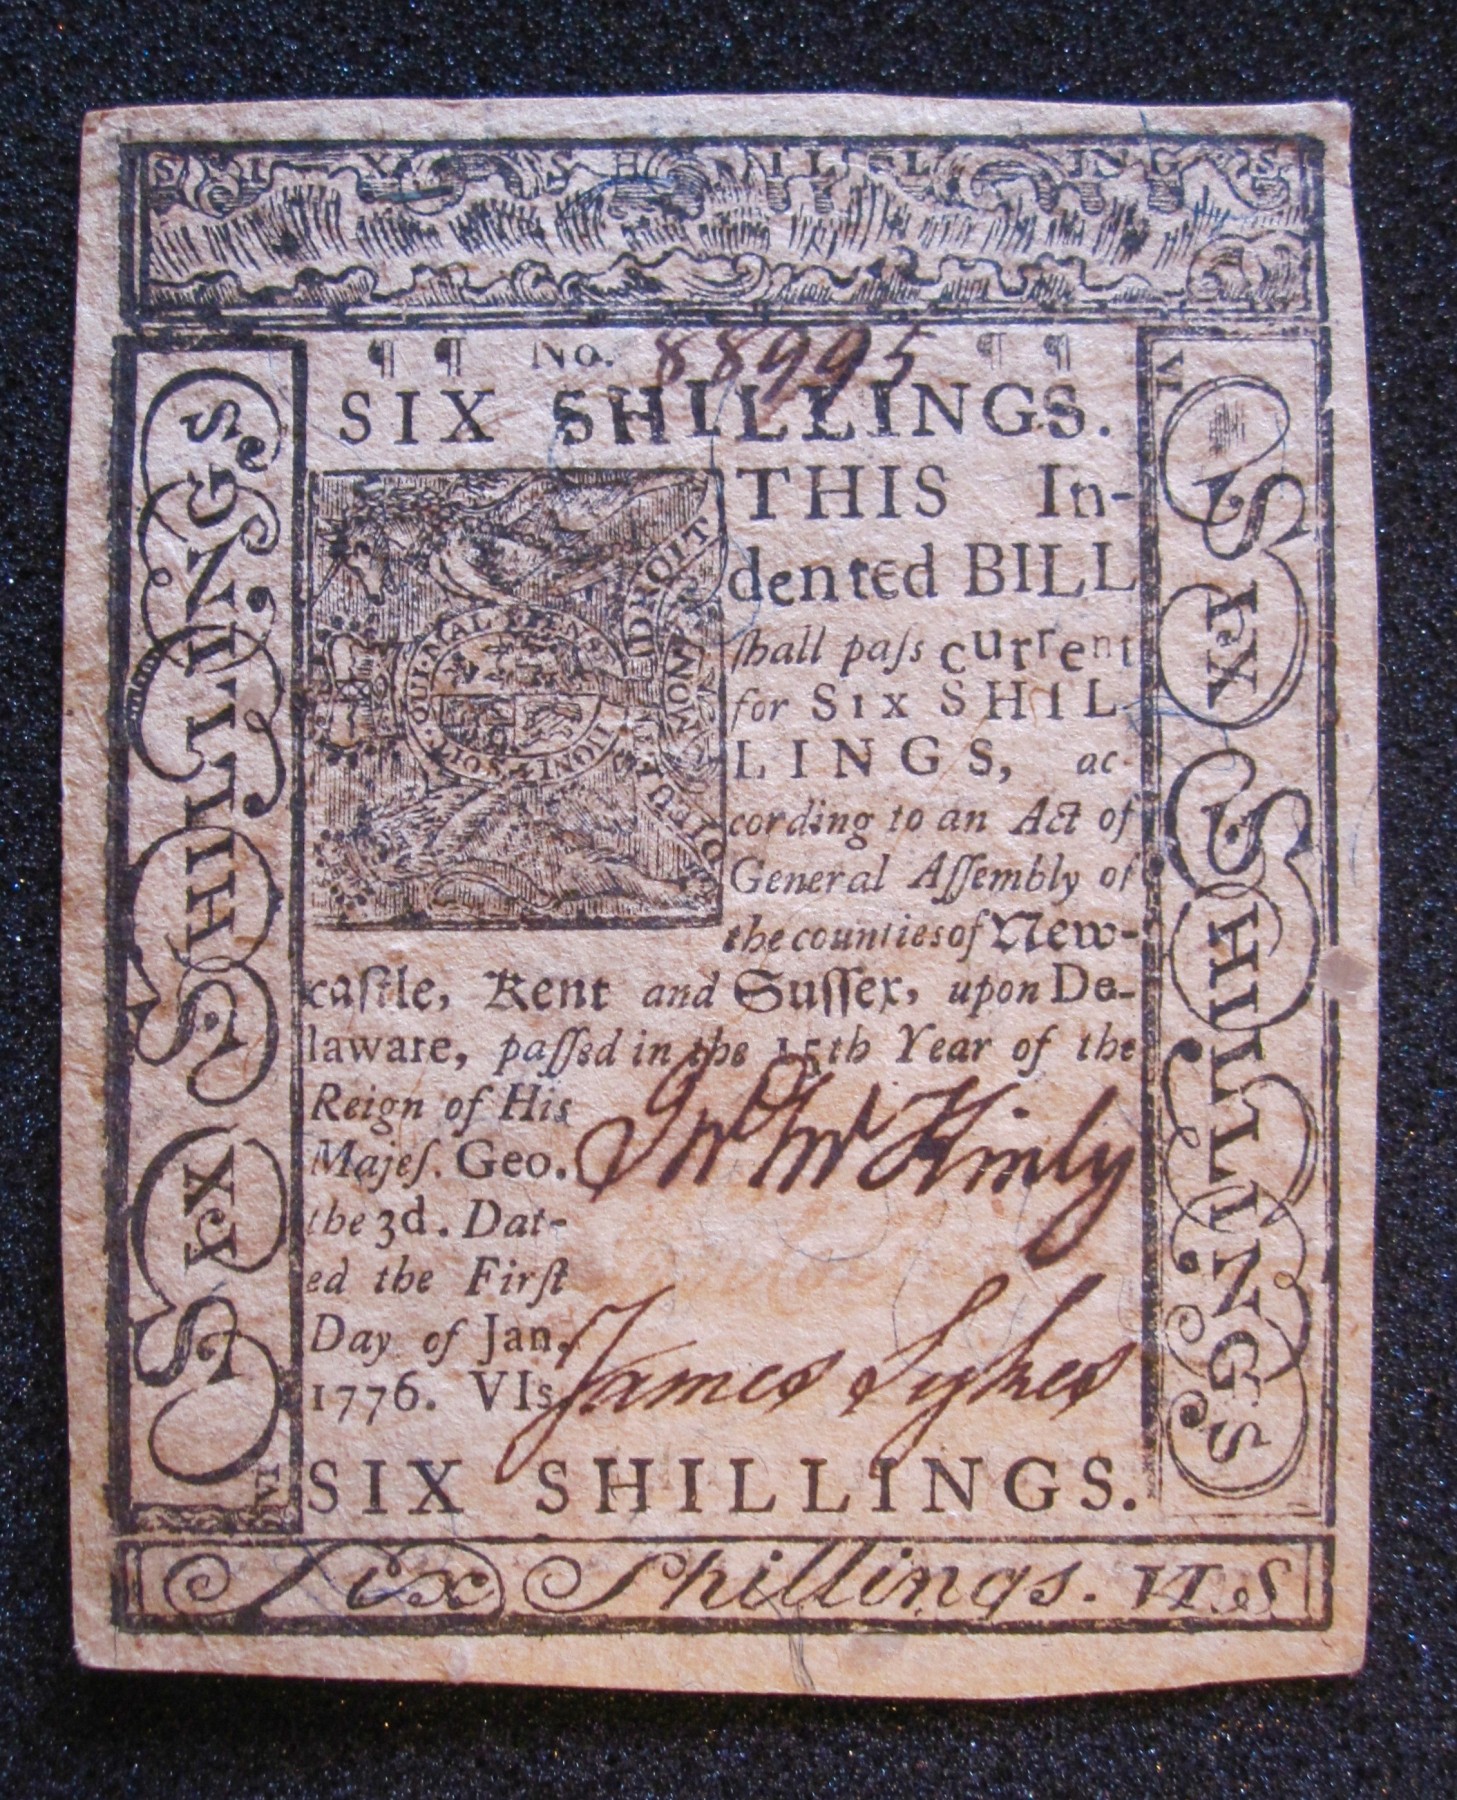 SIX SHILLINGS
¶ ¶ No. 88995 ¶ ¶
SIX SHILLINGS.
THIS In-
dented BILL
ſhall paſs current
for SIX SHIL
LINGS, ac-
cording to an Act of
General Aſſembly of
the counties of New-
caſtle, Kent and Suſſex, upon De-
laware, paſſed in the 15th Year of the
Reign of His
Majeſ. Geo.
the 3d. Dat-
ed the Firſt
Day of Jan.
1776. VIs
James Sykes
SIX SHILLINGS.
Six Shillings. VI.S
SIX SHILLINGS
VI
SIX SHILLINGS
VI
QUI MAL PENSE HONI SOIT
DIEU ET MON DROIT